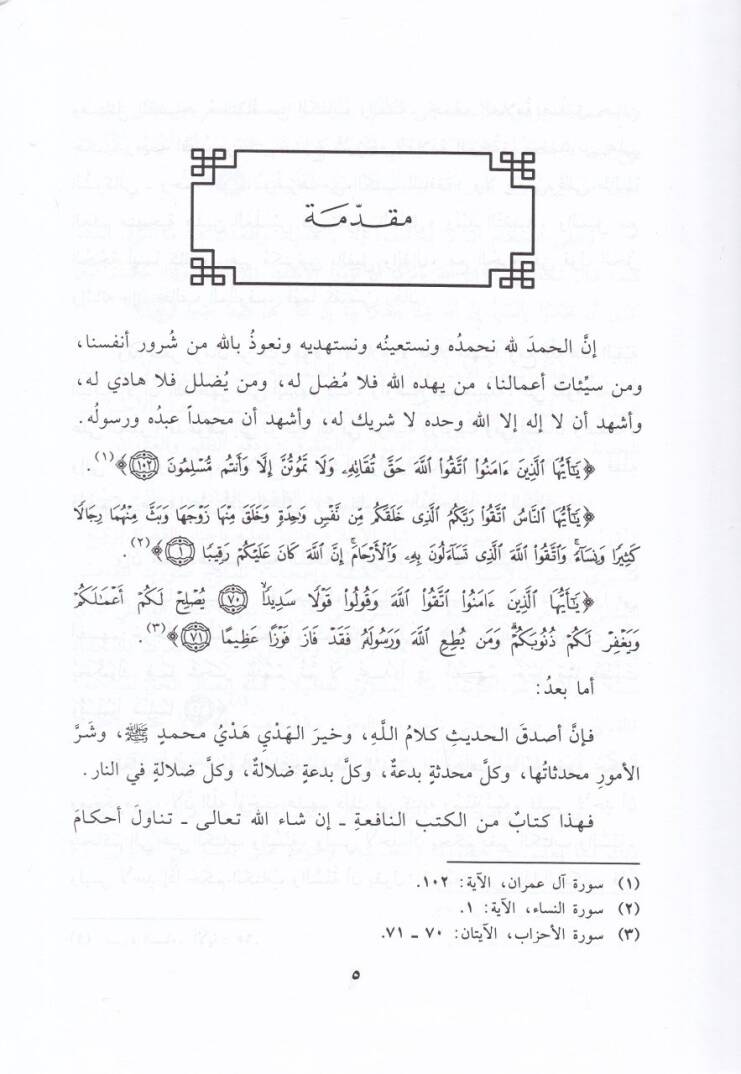 مقدّمَة
إنَّ الحمدَ لله نحمدُه ونستعينُه ونستهديه ونعوذُ بالله من شُرور أنفسنا،
ومن سيِّئات أعمالنا، من يهده الله فلا مُضل له، ومن يُضلل فلا هادي له،
وأشهد أن لا إله إلا الله وحده لا شريك له، وأشهد أن محمداً عبدُه ورسولُه.
﴿يَٰٓأَيُّهَا ٱلَّذِينَ ءَامَنُوا۟ ٱتَّقُوا۟ ٱللَّهَ حَقَّ تُقَالِهِۦ وَلَا تَمُوتُنَّ إِلَّا وَأَنتُم مُّسْلِمُونَ ١٠٢﴾(١).
﴿يَٰٓأَيُّهَا ٱلنَّاسُ ٱتَّقُوا۟ رَبَّكُمُ ٱلَّذِى خَلَقَكُم مِّن نَّفْسٍ وَٰحِدَةٍ وَخَلَقَ مِنْهَا زَوْجَهَا وَبَثَّ مِنْهُمَا رِجَالًا
كَثِيرًا وَنِسَآءً ۚ وَٱتَّقُوا۟ ٱللَّهَ ٱلَّذِى تَسَآءَلُونَ بِهِۦ وَٱلْأَرْحَامَ ۚ إِنَّ ٱللَّهَ كَانَ عَلَيْكُمْ رَقِيبًا ١﴾(٢).
﴿يَٰٓأَيُّهَا ٱلَّذِينَ ءَامَنُوا۟ ٱتَّقُوا۟ ٱللَّهَ وَقُولُوا۟ قَوْلًا سَدِيدًا ٧٠ يُصْلِحْ لَكُمْ أَعْمَٰلَكُمْ
وَيَغْفِرْ لَكُمْ ذُنُوبَكُمْ ۗ وَمَن يُطِعِ ٱللَّهَ وَرَسُولَهُۥ فَقَدْ فَازَ فَوْزًا عَظِيمًا ٧١﴾(٣).
أما بعدُ:
فإنَّ أصدقَ الحديثِ كلامُ اللَّهِ، وخيرَ الهَدْيِ هَدْيُ محمدٍ ﷺ، وشَرَّ
الأمورِ محدثاتُها، وكلَّ محدثةٍ بدعةٌ، وكلَّ بدعةٍ ضلالةٌ، وكلَّ ضلالةٍ في النار.
فهذا كتابٌ من الكتب النافعةِ ـ إن شاء الله تعالى ـ تناولَ أحكامَ
(١) سورة آل عمران، الآية: ١٠٢.
(٢) سورة النساء، الآية: ١.
(٣) سورة الأحزاب، الآيتان: ٧٠ ـ ٧١.
٥